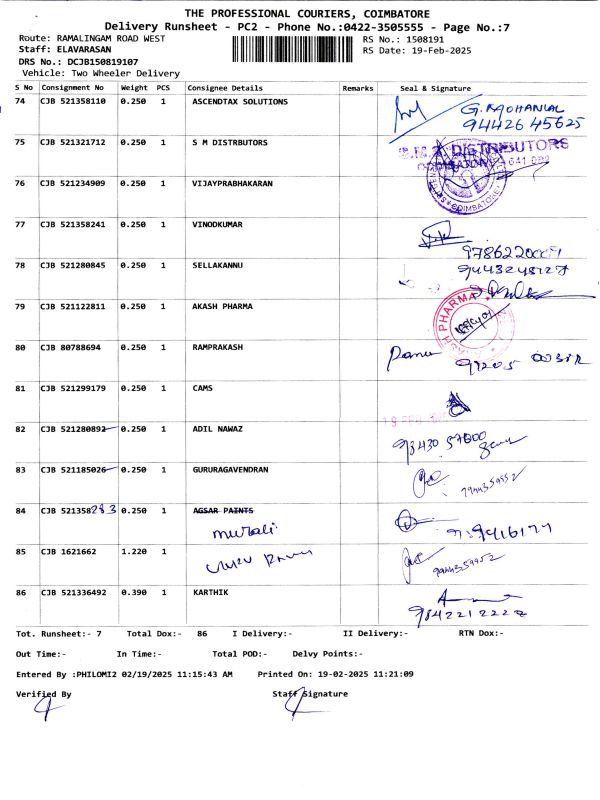 THE PROFESSIONAL COURIERS, COIMBATORE
Delivery Runsheet - PC2 - Phone No.:0422-3505555 - Page No.:7
Route: RAMALINGAM ROAD WEST RS No.: 1508191
Staff: ELAVARASAN RS Date: 19-Feb-2025
DRS No.: DCJB150819107
Vehicle: Two Wheeler Delivery
S No Consignment No Weight PCS Consignee Details Remarks Seal & Signature
74 CJB 521358110 0.250 1 ASCENDTAX SOLUTIONS G. MOHANLAL
94426 45625
75 CJB 521321712 0.250 1 S M DISTRBUTORS DISTRIBUTORS
76 CJB 521234909 0.250 1 VIJAYPRABHAKARAN COIMBATORE
77 CJB 521358241 0.250 1 VINODKUMAR
78 CJB 521280845 0.250 1 SELLAKANNU
79 CJB 521122811 0.250 1 AKASH PHARMA PHARMA
80 CJB 80788694 0.250 1 RAMPRAKASH
81 CJB 521299179 0.250 1 CAMS
82 CJB 521280892 0.250 1 ADIL NAWAZ
83 CJB 521185026 0.250 1 GURURAGAVENDRAN
84 CJB 521358283 0.250 1 AGSAR PAINTS
murali
85 CJB 1621662 1.220 1
86 CJB 521336492 0.390 1 KARTHIK
Tot. Runsheet:- 7 Total Dox:- 86 I Delivery:- II Delivery:- RTN Dox:-
Out Time:- In Time:- Total POD:- Delvy Points:-
Entered By :PHILOMI2 02/19/2025 11:15:43 AM Printed On: 19-02-2025 11:21:09
Verified By Staff Signature